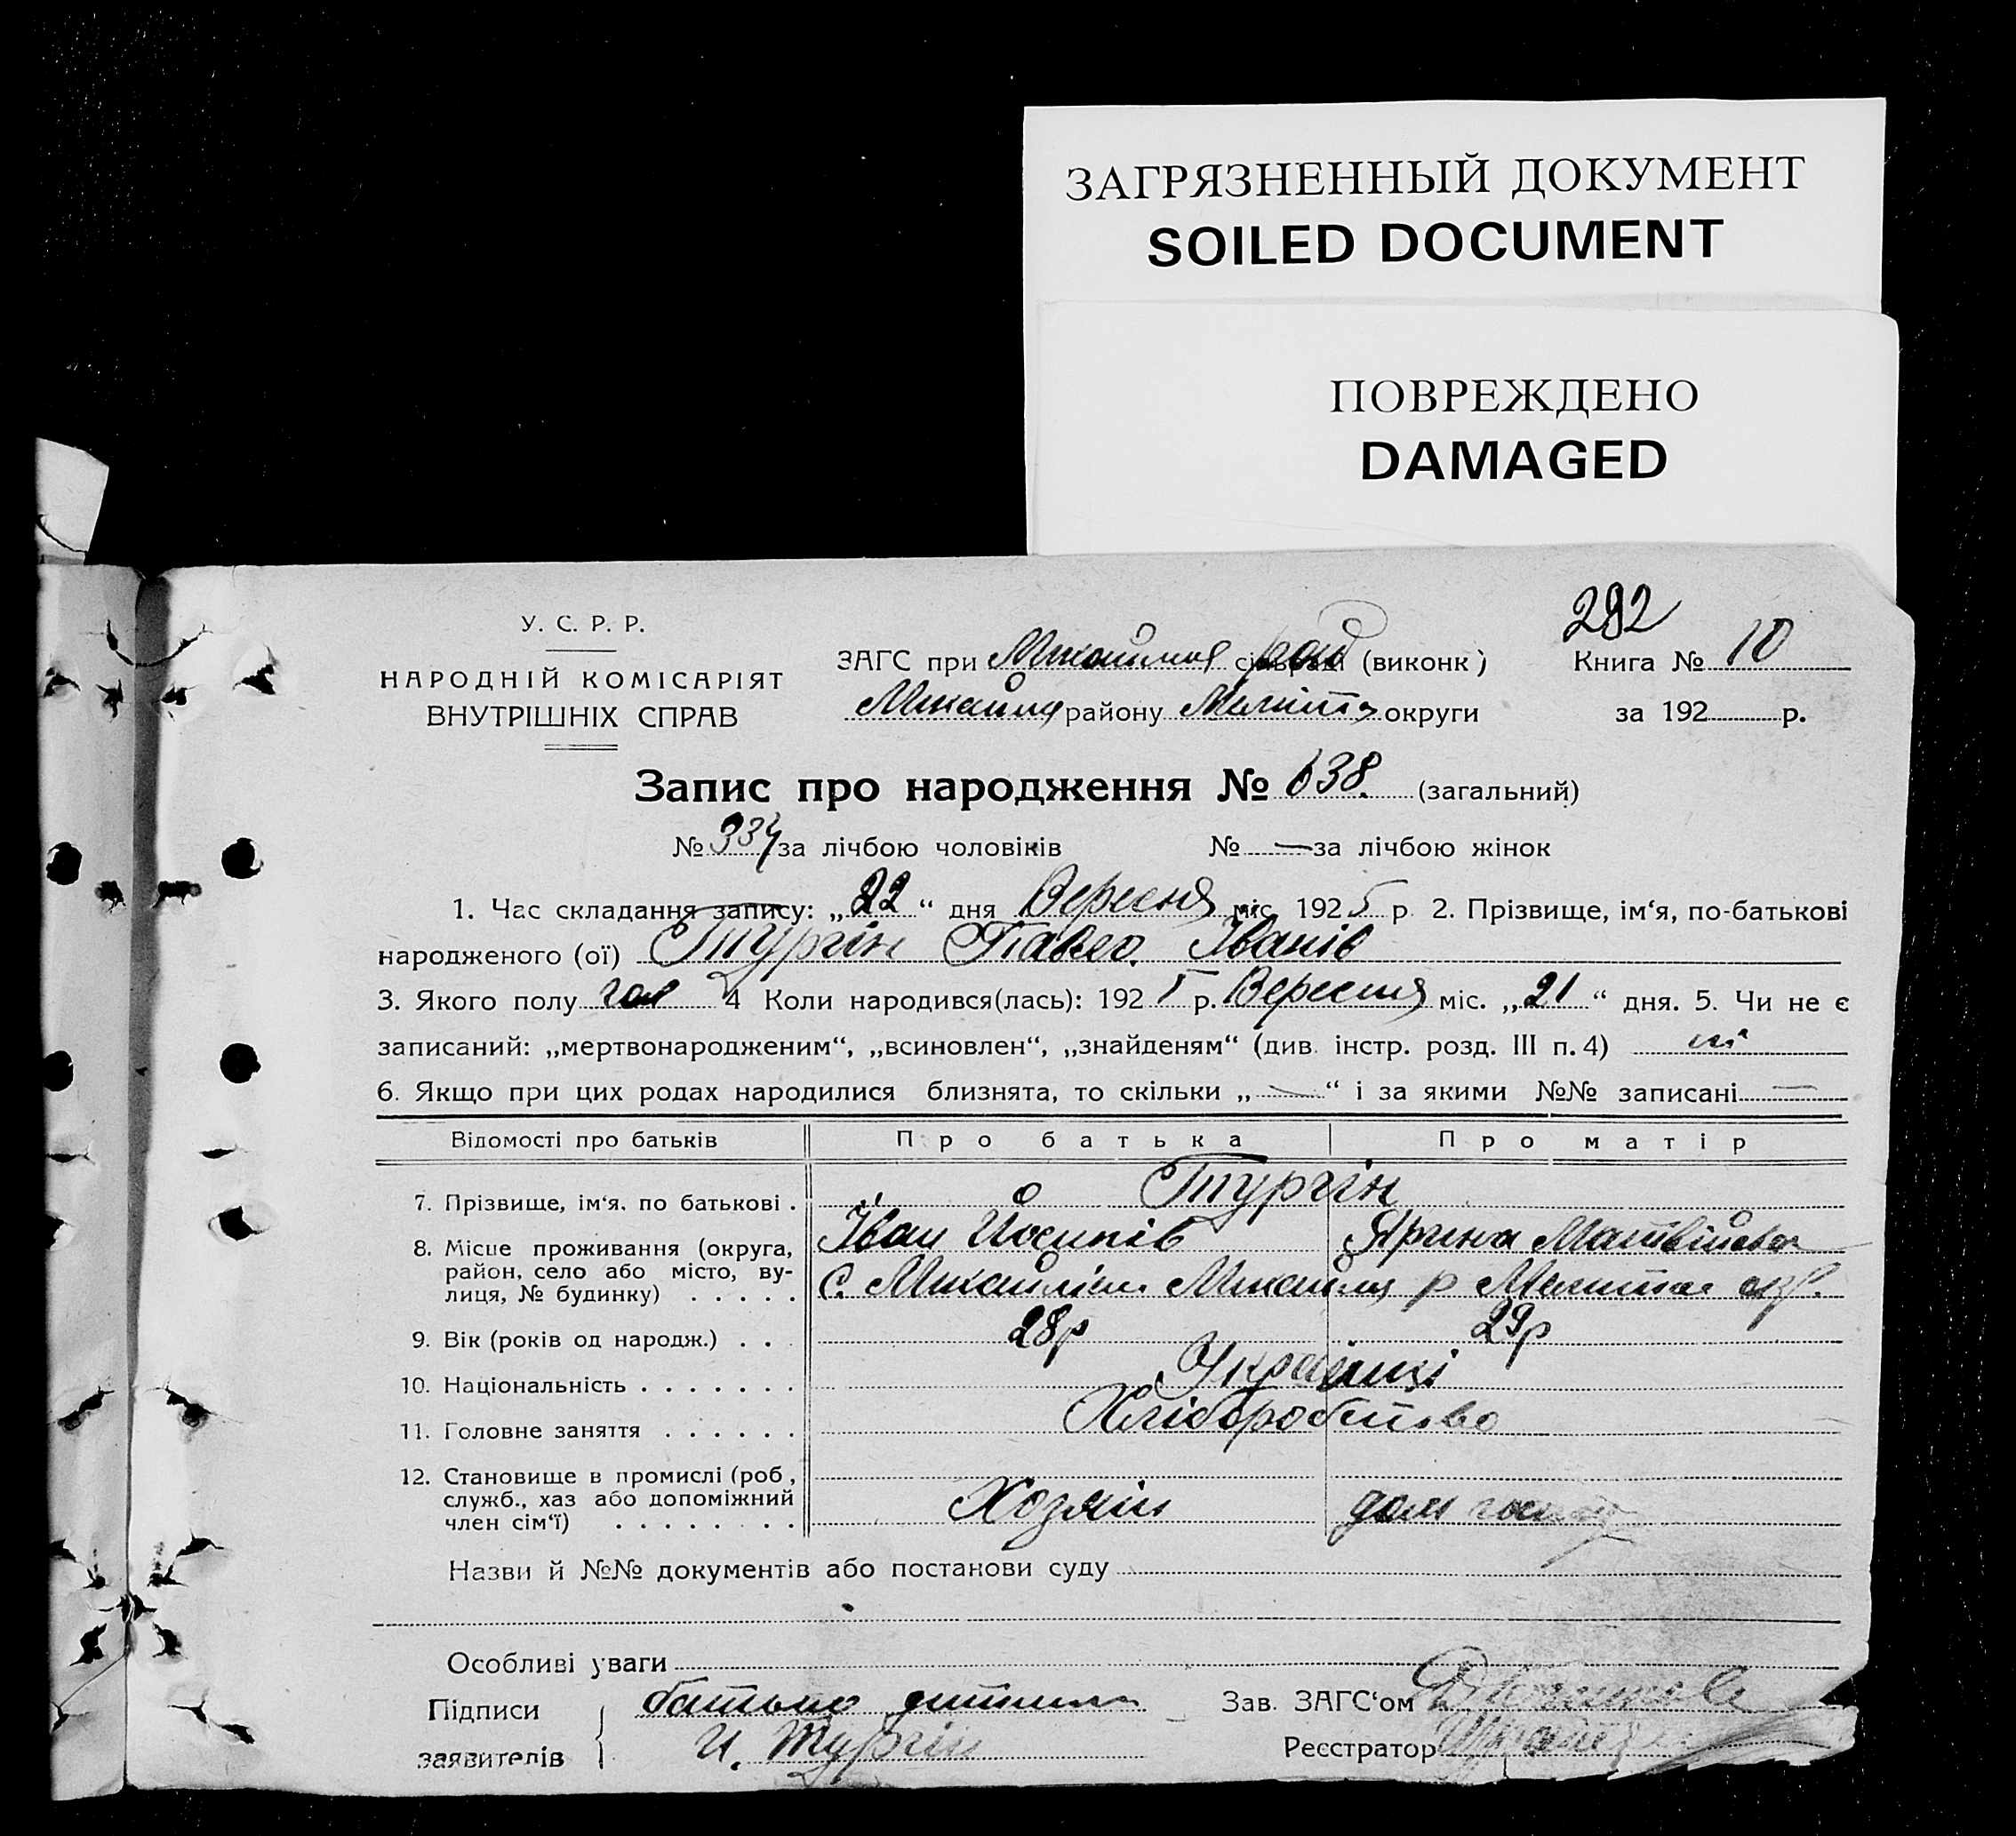 ЗАГРЯЗНЕННЫЙ ДОКУМЕНТ
SOILED DOCUMENT
ПОВРЕЖДЕНО
DAMAGED
282
У. С. Р. Р.
НАРОДНІЙ КОМІСАРІЯТ
ВНУТРІШНІХ СПРАВ
ЗАГС при (виконк)
району округи
Книга № 10
за 192 р.
Запис про народження № 638. (загальний)
№ 334 за лічбою чоловіків № — за лічбою жінок
1. Час складання запису: „22“ дня Вересня міс. 1925 р 2. Прізвище, ім‘я, по-батькові
народженого (ої) Тургін Павло Іванів
3. Якого полу чол 4 Коли народився(лась): 1925 р. Вересня міс. „21“ дня. 5. Чи не є
записаний: „мертвонародженим“, „всиновлен“, „знайденям“ (див. інстр. розд. III п. 4) ні
6. Якщо при цих родах народилися близнята, то скільки „—“ і за якими №№ записані —
Відомості про батьків Про батька Про матір
7. Прізвище, ім‘я. по батькові . Тургін
Іван Йосипів Ярина Матвійовна
8. Місце проживання (округа,
район, село або місто, ву-
лиця, № будинку) . . . . . С.
9. Вік (років од народж.) . . 28р 29р
10. Національність . . . . . . . Українці
11. Головне заняття . . . . . . Хліборобство
12. Становище в промислі (роб,
служб., хаз або допоміжний
член сім‘ї) . . . . . . . Хозяїн дом
Назви й №№ документів або постанови суду
Особливі уваги
Підписи батько дитини
заявителів И. Тургін
Зав. ЗАГС‘ом
Реєстратор